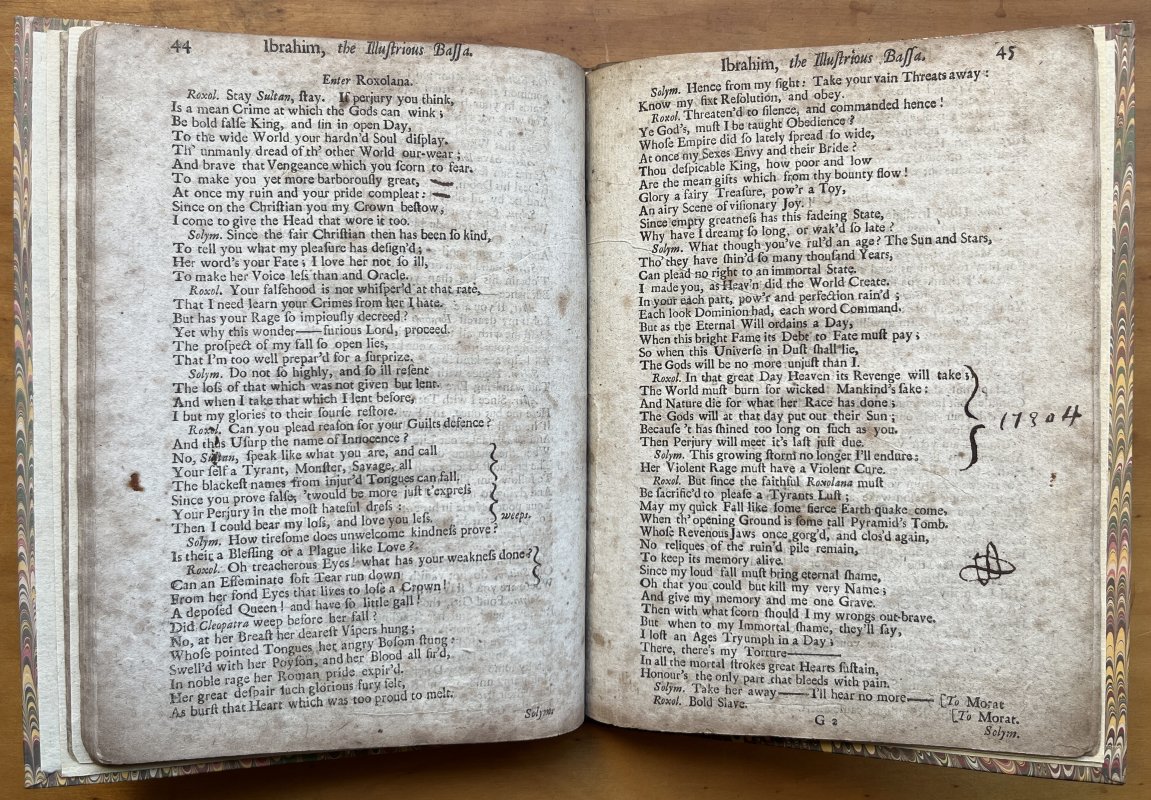 44 Ibrahim, the Illuſtrious Baſſa.
Enter Roxolana.
Roxol. Stay Sultan, ſtay. If perjury you think,
Is a mean Crime at which the Gods can wink;
Be bold falſe King, and ſin in open Day,
To the wide World your hardn'd Soul diſplay.
Th' unmanly dread of th' other World out-wear;
And brave that Vengeance which you ſcorn to fear.
To make you yet more barborouſly great,
At once my ruin and your pride compleat:
Since on the Chriſtian you my Crown beſtow,
I come to give the Head that wore it too.
Solym. Since the fair Chriſtian then has been ſo kind,
To tell you what my pleaſure has deſign'd;
Her word's your Fate; I love her not ſo ill,
To make her Voice leſs than and Oracle.
Roxol. Your falſehood is not whiſper'd at that rate,
That I need learn your Crimes from her I hate.
But has your Rage ſo impiouſly decreed?
Yet why this wonder——furious Lord, proceed.
The proſpect of my fall ſo open lies,
That I'm too well prepar'd for a ſurprize.
Solym. Do not ſo highly, and ſo ill reſent
The loſs of that which was not given but lent.
And when I take that which I lent before,
I but my glories to their ſourſe reſtore.
Roxol. Can you plead reaſon for your Guilts defence?
And thus Uſurp the name of Innocence?
No, Sultan, ſpeak like what you are, and call
Your ſelf a Tyrant, Monſter, Savage, all
The blackeſt names from injur'd Tongues can fall,
Since you prove falſe, 'twould be more juſt t'expreſs
Your Perjury in the moſt hateful dreſs:
Then I could bear my loſs, and love you leſs. weeps.
Solym. How tireſome does unwelcome kindneſs prove?
Is their a Bleſſing or a Plague like Love?
Roxol. Oh treacherous Eyes! what has your weakneſs done?
Can an Effeminate ſoft Tear run down
From her fond Eyes that lives to loſe a Crown!
A depoſed Queen! and have ſo little gall!
Did Cleopatra weep before her fall?
No, at her Breaſt her deareſt Vipers hung;
Whoſe pointed Tongues her angry Boſom ſtung:
Swell'd with her Poyſon, and her Blood all fir'd,
In noble rage her Roman pride expir'd.
Her great deſpair ſuch glorious fury felt,
As burſt that Heart which was too proud to melt.
Solym.
Ibrahim, the Illuſtrious Baſſa. 45
Solym. Hence from my ſight: Take your vain Threats away:
Know my fixt Reſolution, and obey.
Roxol. Threaten'd to ſilence, and commanded hence!
Ye God's, muſt I be taught Obedience?
Whoſe Empire did ſo lately ſpread ſo wide,
At once my Sexes Envy and their Bride?
Thou deſpicable King, how poor and low
Are the mean gifts which from thy bounty flow!
Glory a fairy Treaſure, pow'r a Toy,
An airy Scene of viſionary Joy.
Since empty greatneſs has this fadeing State,
Why have I dreamt ſo long, or wak'd ſo late?
Solym. What though you've rul'd an age? The Sun and Stars,
Tho' they have ſhin'd ſo many thouſand Years,
Can plead no right to an immortal State.
I made you, as Heav'n did the World Create.
In your each part, pow'r and perfection rain'd;
Each look Dominion had, each word Command.
But as the Eternal Will ordains a Day,
When this bright Fame its Debt to Fate muſt pay;
So when this Univerſe in Duſt ſhall lie,
The Gods will be no more unjuſt than I.
Roxol. In that great Day Heaven its Revenge will take;
The World muſt burn for wicked Mankind's ſake:
And Nature die for what her Race has done;
The Gods will at that day put out their Sun;
Becauſe 't has ſhined too long on ſuch as you.
Then Perjury will meet it's laſt juſt due.
Solym. This growing ſtorm no longer I'll endure:
Her Violent Rage muſt have a Violent Cure.
Roxol. But ſince the faithful Roxolana muſt
Be ſacrific'd to pleaſe a Tyrants Luſt;
May my quick Fall like ſome fierce Earth quake come,
When th' opening Ground is ſome tall Pyramid's Tomb.
Whoſe Revenous Jaws once gorg'd, and clos'd again,
No reliques of the ruin'd pile remain,
To keep its memory alive.
Since my loud fall muſt bring eternal ſhame,
Oh that you could but kill my very Name;
And give my memory and me one Grave.
Then with what ſcorn ſhould I my wrongs out-brave.
But when to my Immortal ſhame, they'll ſay,
I loſt an Ages Tryumph in a Day;
There, there's my Torture————
In all the mortal ſtrokes great Hearts ſuſtain,
Honour's the only part that bleeds with pain.
Solym. Take her away——I'll hear no more—— [To Morat
Roxol. Bold Slave. [To Morat.
G 2 Solym.